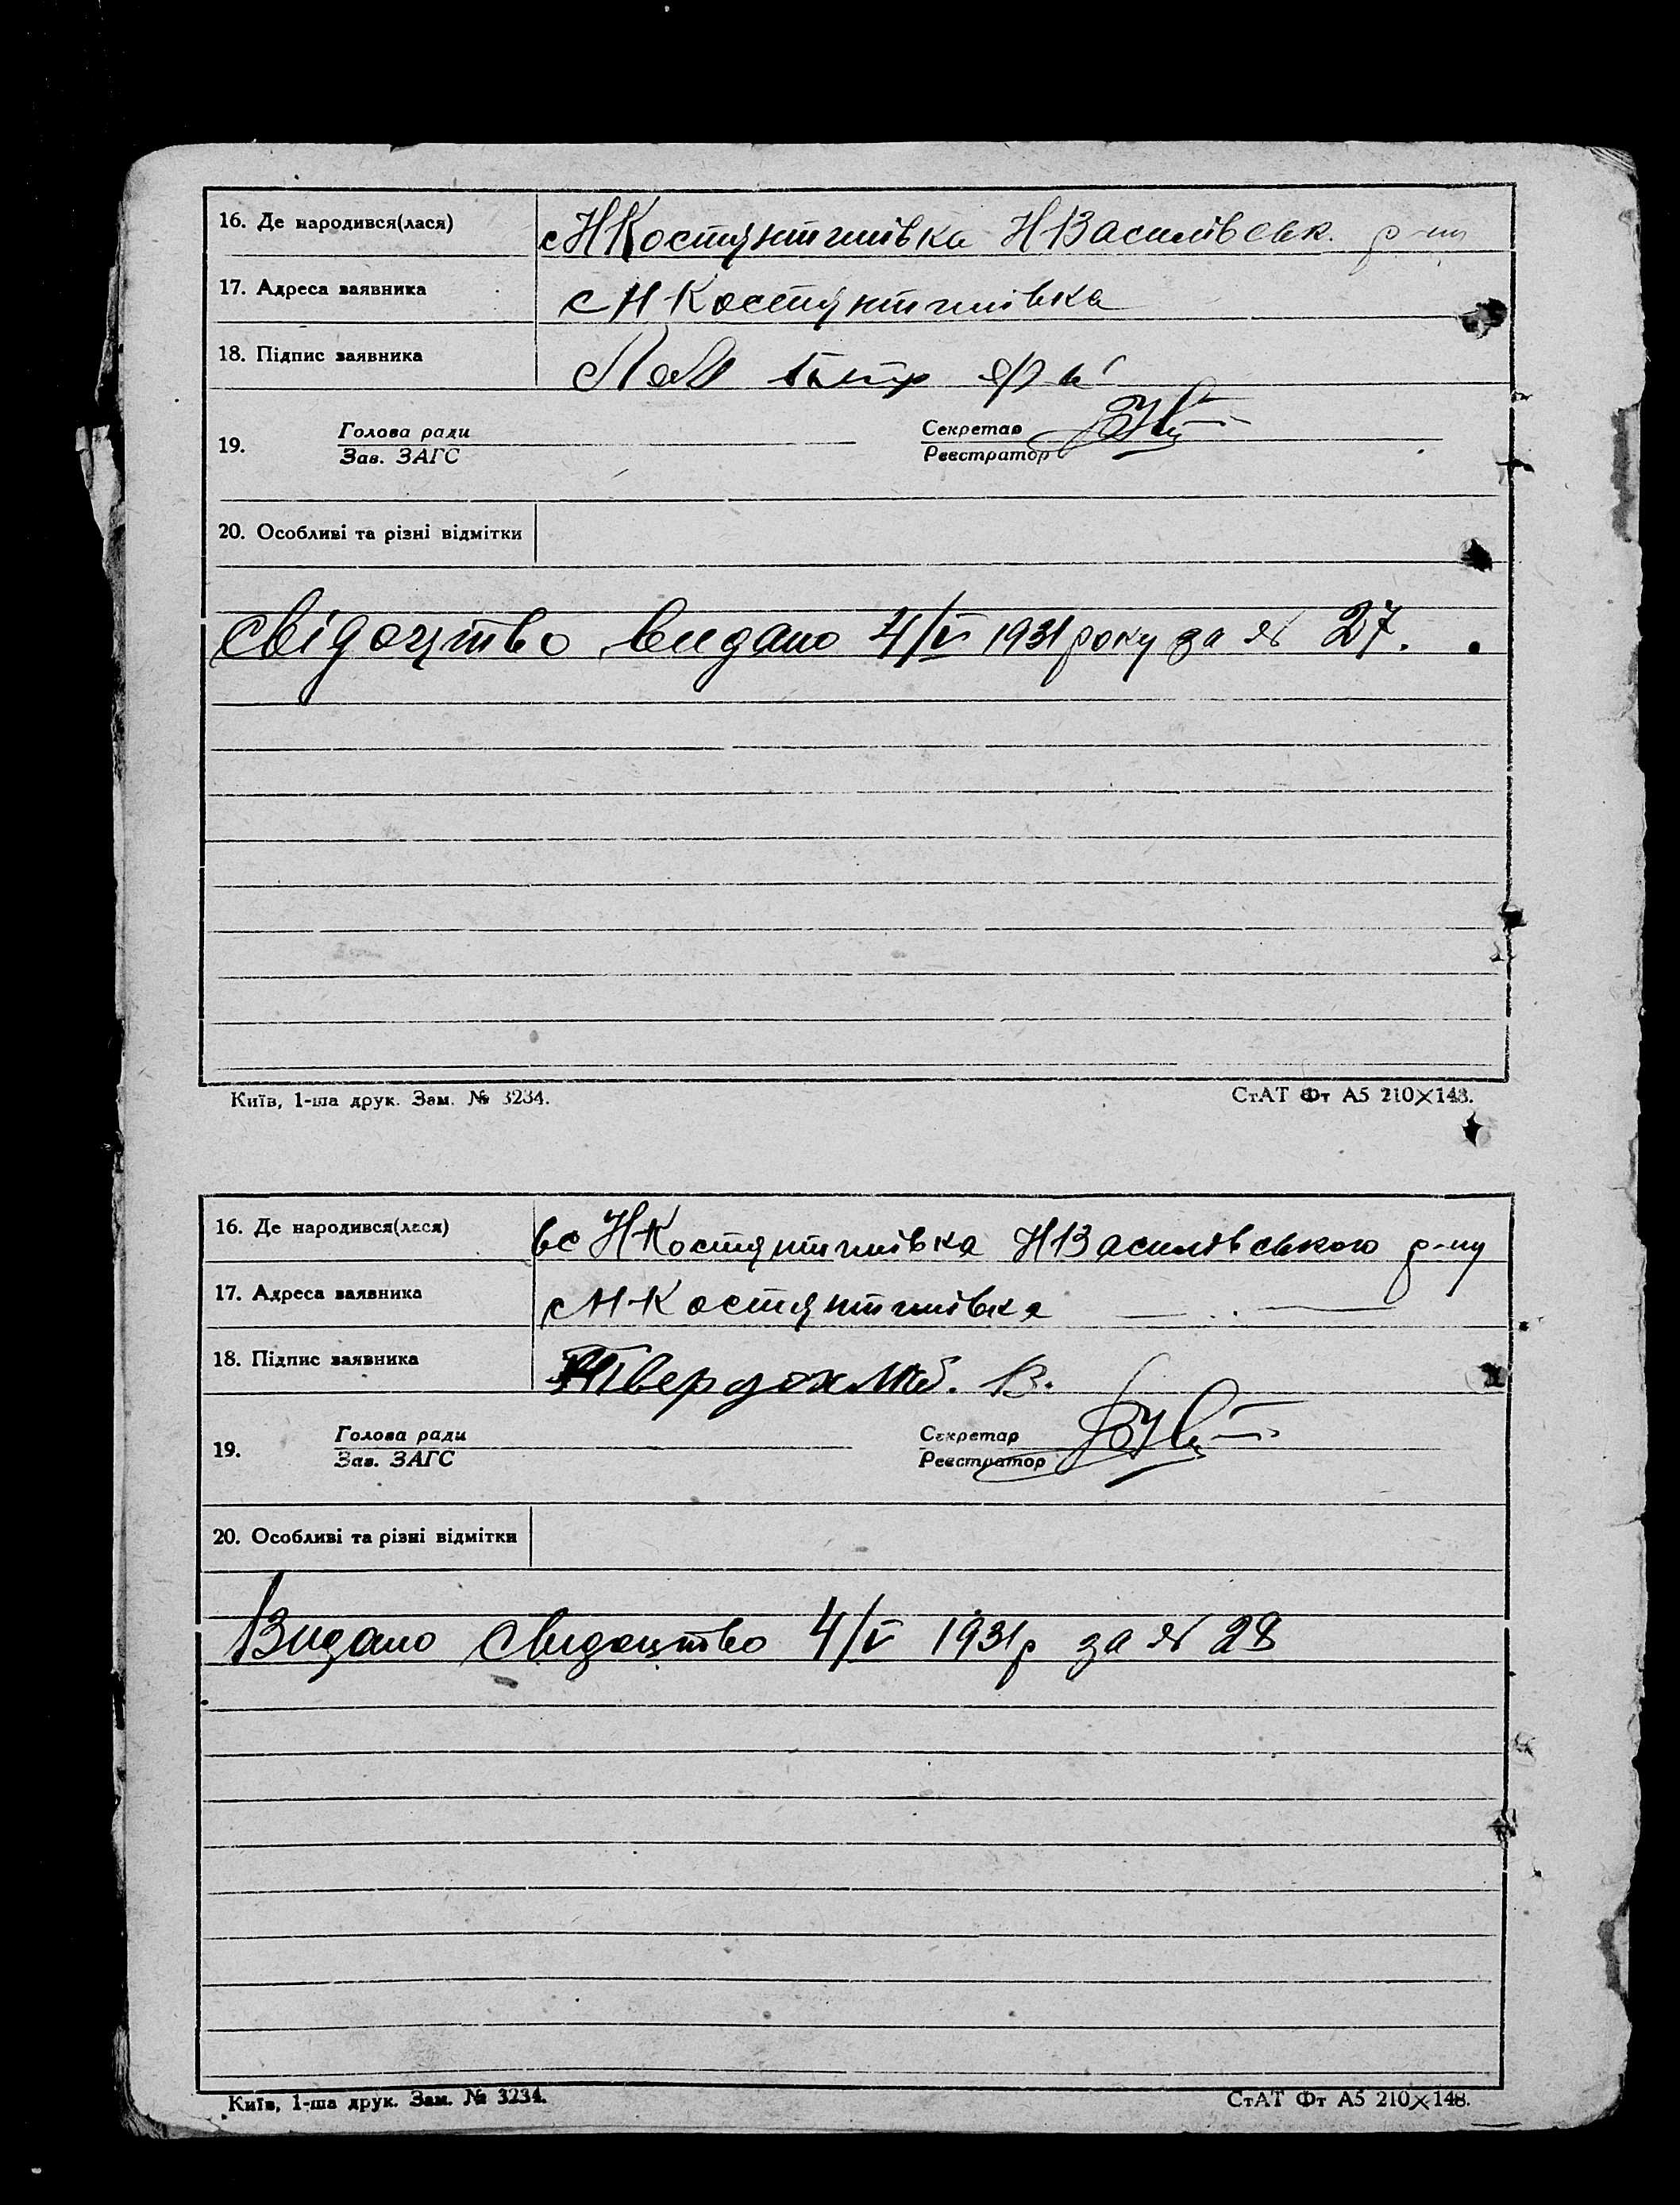 16. Де народився(лася) с Н Костянтинівка Н Василівськ. р-ну
17. Адреса заявника с Н Костянтинівка
18. Підпис заявника
19. Голова ради Секретар
Зав. ЗАГС Реєстратор
20. Особливі та різні відмітки
Свідоцтво видано 4/V 1931 року за № 27.
Київ, 1-ша друк. Зам. № 3234. СтАТ Фт А5 210×148.
16. Де народився(лася) в с Н Костянтинівка Н Василівського р-ну
17. Адреса заявника с Н Костянтинівка
18. Підпис заявника Твердохліб. В.
19. Голова ради Секретар
Зав. ЗАГС Реєстратор
20. Особливі та різні відмітки
Видано свидоцтво 4/V 1931 р за № 28
Київ, 1-ша друк. Зам. № 3234. СтАТ Фт А5 210×148.